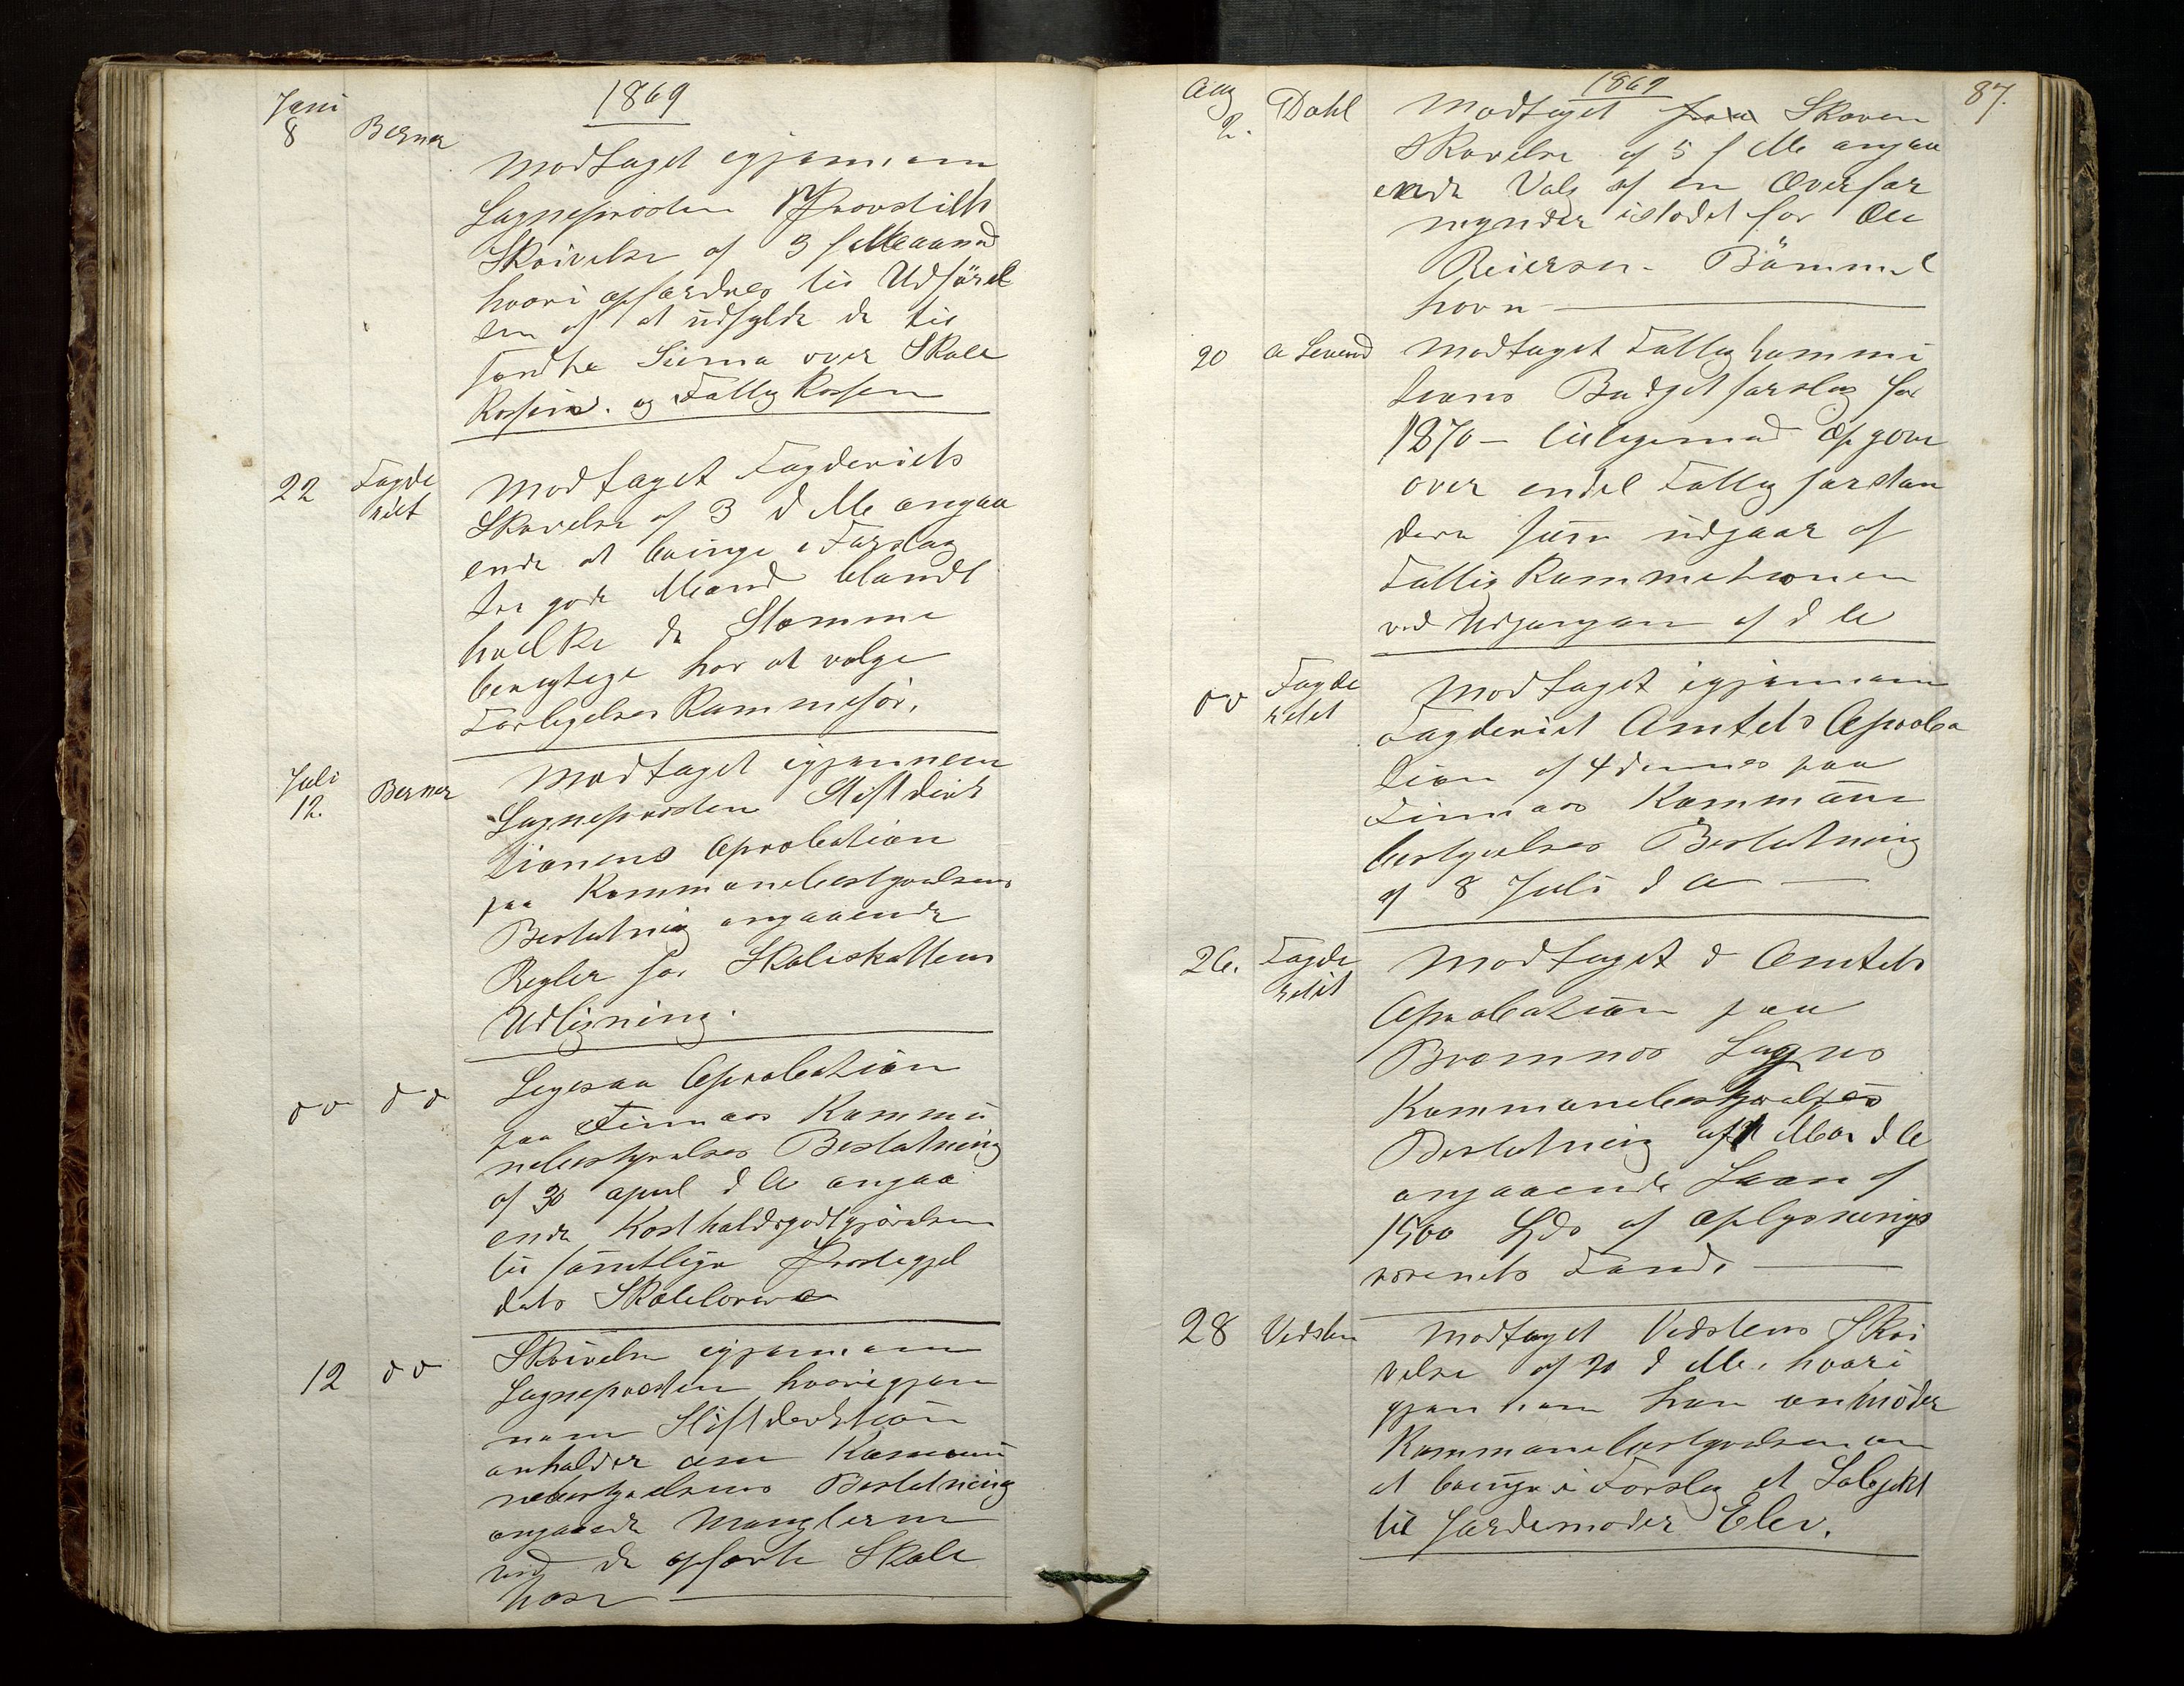 1869
Juni
8 Berner
Modtaget igjennem
Sognepræsten Provstiets
Skrivelse af 3 f Maaned
hvori opfordres til Udførel
sen af at udfylde de til
sendte Skema over Skole
Kassens og Fattig Kassen
22 Fogde
riet
Modtaget Fogderiets
Skrivelse af 3 d M angaa
ende at bringe i Forslag
tre gode Mænd blandt
hvilke de Stemme
berettigede har at vælge
Forligelses Kommissær.
Juli
12. Berner
Modtaget igjennem
Sognepræsten Stiftdirek
tionens Aprobation
paa Kommunebestyrelsens
Beslutning angaaende
Regler for Skoleskattens
Udligning.
do do
Ligesaa Aprobation
paa Finnaas Kommu
nebestyrelses Beslutning
af 30 april d A angaa
ende Kostholdsgodtgjørelsen
til samtlige Prestegjel
dets Skolelærere
12 do
Skrivelse igjennem
Sognepræsten hvorigjen
nem Stiftdirektion
anholder om Kommu
nebestyrelsens Beslutning
angaaende Manglerne
ved de opførte Skole
huse
1869
87.
Aug
2. Dahl
Modtaget fra Skoven
Skrivelse af 5 f M angaa
ende Valg af en Overfor
mynder istedet for Ole
Reiersen Bömmel
havn
20 a Sevend
Modtaget Fattigkommi
sions Budgetforslag for
1870 – tilligemed Opgave
over endel Fattigforstan
dere som udgaar af
Fattig Kommisionen
ved Udgangen af d A
do Fogde
riet
Modtaget igjennem
Fogderiet Amtets Aproba
tion af 4 dennes paa
Finnaas Kommune
bestyrelses Beslutning
af 8 Juli d A
26. Fogde
riet
Modtaget d Amtets
Aprobation paa
Bremnes Sogns
Kommunebestyrelses
Beslutning af 1 Mai d A
angaaende Laan af
1500 Spd af Oplysnings
væsenets Fond.
28 Vedsten
Modtaget Vedstens Skri
velse af 20 d M. hvori
gjennem han anmoder
Kommunebestyrelsen om
at bringe i Forslag et Subjekt
til Jordemoder Elev.